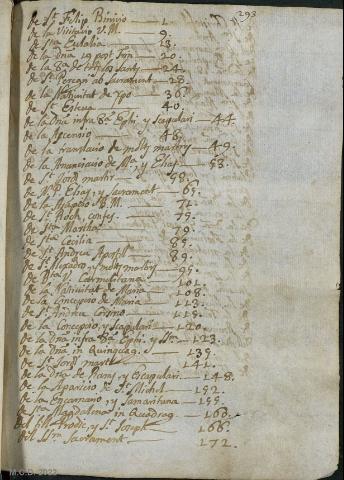 293
de St. Felip Benicio — 1.
de la Visitacio V. M. — 9.
de Sta. Eulalia — 13.
de la Dna. 19 post Pen. — 20.
de la de tots los Sants — 24.
de St. Peregri al Sacrament — 28.
de la Nativitat de Xpo — 36.
de St. Esteva — 40.
de la Dna infra 8a. Ephi. y scapulari — 44.
de la Ascensio — 48.
de la translacio de molts martirs — 49.
de la Anunciacio de Ma. y Elias — 53.
de St. Jordi martir — 59.
de N. P. Elias, y Sacrament — 65.
de la B. M. — 71.
de St. Roch, confes. — 75.
de Sta. Martha — 79.
de Sta. Cecilia — 85.
de St. Andreu Apostl. — 89.
de St. y molts martirs — 95.
de Carmelitana — 101.
de la Nativitat de Maria — 108.
de la Concepcio de Maria — 113.
de St. Andreu Corsino — 119.
de la Concepcio, y Scapulari — 120.
de la Dna infra 8a. Ephi. y SSm. — 123.
de la Dna in Quinquag. — 139.
de St. Jordi martir — 141.
de la Dna de Rams, y Escapulari — 148.
de la Aparicio de St. Michel — 152.
de la Encarnacio, y Samaritana — 155.
de Sta. Magdalena in Quadrag. — 160.
del y St. Joseph — 166.
del SSm. Sacrament — 172.
M.C.D. 2022